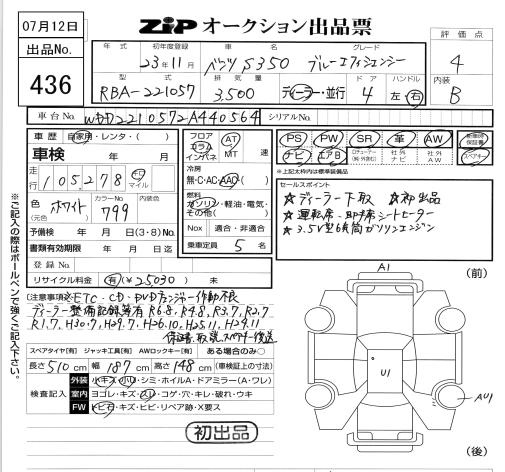 07月12日
ZIP オークション出品票
出品No.
436
評価点
4
内装
B
年式 初年度登録 車名 グレード
23年11月 ベンツ S350 ブルーエフィシェンシー
型式 排気量 ドア ハンドル
RBA-221057 3,500 ディーラー・並行 4 左・右
車台No. WDD2210572A440564 シリアルNo.
車歴 自家用・レンタ・( )
車検 年 月
走行 105,278 km マイル
色(元色) ホワイト カラーNo 799 内装色
予備検 年 月(3・8)No.
書類有効期限 年 月 日迄
登録No.
リサイクル料金 有(¥25,030) 未
フロア コラム インパネ AT MT 速
冷房 無・C・AC・AAC
燃料 ガソリン・軽油・電気・その他( )
Nox 適合・非適合
乗車定員 5 名
PS PW SR 革 AW 新車時保証書
ナビ エアB 社外ナビ 社外AW スペアキー
※上記太枠内は標準装備品
セールスポイント
★ディーラー下取 ★初出品
★運転席・助手席シートヒーター
★3.5V型6気筒ガソリンエンジン
(注意事項)
※ETC・CD・DVDチェンジャー作動不良
ディーラー整備記録簿有 R6.8, R4.8, R3.7, R2.7
R1.7, H30.7, H29.7, H26.10, H25.11, H24.11
保証書、取説、スペアキー後送
スペアタイヤ[有] ジャッキ工具[有] AWロックキー[有] ある場合のみ○
長さ 510 cm 幅 187 cm 高さ 148 cm (車検証上の寸法)
検査記入
外装 小キズ・小凹・シミ・ホイルA・ドアミラー(A・ワレ)
室内 ヨゴレ・キズ・スレ・コゲ・穴・キレ・破れ・ウキ
FW トビ石・キズ・ヒビ・リペア跡・X要ス
初出品
※ご記入の際はボールペンで強くご記入下さい。
(前)
A1
U1
AU1
(後)